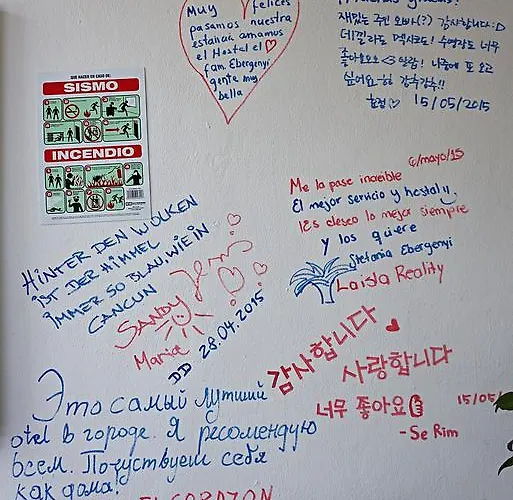 Muy felices
pasamos nuestra
estancia amamos
el Hostel el ♡
fam. Ebergenyi
gente muy
bella
재밌는 주인 오빠(?) 감사합니다 :D
데낄라도 멕시코도! 수영장도 너무
좋아요오 <3
나중에 또 오고
싶어요 ㅎㅎ 강추강추!!
♡ 15/05/2015
QUE HACER EN CASO DE:
SISMO
INCENDIO
6/mayo/15
Me la pase increible
El mejor servicio y hostal!!
les deseo lo mejor siempre
y los quiere
Stefania Ebergenyi
Laisla Reality
HINTER DEN WOLKEN
iST DER HiMMEL
iMMER SO BLAU, WiE iN
CANCUN
SANDY
Maria
DD 28.04.2015
감사합니다
사랑합니다
너무 좋아요
15/05/
-Se Rim
Это самый лутший
otel в городе. Я рекомендую
всем. Почуствуеш себя
как дома!
EL CORAZON